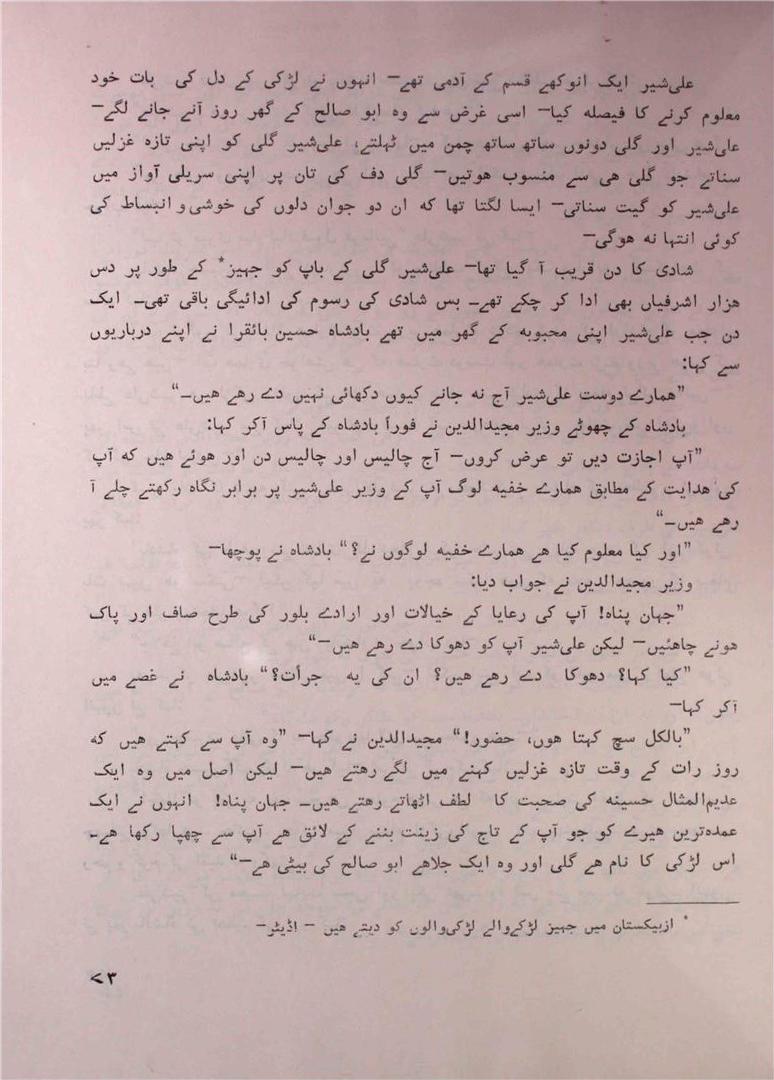 علی‌شیر ایک انوکھے قسم کے آدمی تھے— انہوں نے لڑکی کے دل کی بات خود
معلوم کرنے کا فیصلہ کیا— اسی غرض سے وہ ابو صالح کے گھر روز آنے جانے لگے—
علی‌شیر اور گلی دونوں ساتھ ساتھ چمن میں ٹہلتے، علی‌شیر گلی کو اپنی تازہ غزلیں
سناتے جو گلی ھی سے منسوب ہوتیں— گلی دف کی تان پر اپنی سریلی آواز میں
علی‌شیر کو گیت سناتی— ایسا لگتا تھا کہ ان دو جوان دلوں کی خوشی و انبساط کی
کوئی انتہا نہ ہوگی—
شادی کا دن قریب آ گیا تھا— علی‌شیر گلی کے باپ کو جہیز* کے طور پر دس
ھزار اشرفیاں بھی ادا کر چکے تھے— بس شادی کی رسوم کی ادائیگی باقی تھی— ایک
دن جب علی‌شیر اپنی محبوبہ کے گھر میں تھے بادشاہ حسین بائقرا نے اپنے درباریوں
سے کہا:
”ھمارے دوست علی‌شیر آج نہ جانے کیوں دکھائی نہیں دے رھے ھیں—“
بادشاہ کے چھوٹے وزیر مجیدالدین نے فوراً بادشاہ کے پاس آکر کہا:
”آپ اجازت دیں تو عرض کروں— آج چالیس اور چالیس دن اور ھوئے ھیں کہ آپ
کی ھدایت کے مطابق ھمارے خفیہ لوگ آپ کے وزیر علی‌شیر پر برابر نگاہ رکھتے چلے آ
رھے ھیں—“
”اور کیا معلوم کیا ھے ھمارے خفیہ لوگوں نے؟“ بادشاہ نے پوچھا—
وزیر مجیدالدین نے جواب دیا:
”جہان پناہ! آپ کی رعایا کے خیالات اور ارادے بلور کی طرح صاف اور پاک
ھونے چاھئیں— لیکن علی‌شیر آپ کو دھوکا دے رھے ھیں—“
”کیا کہا؟ دھوکا دے رھے ھیں؟ ان کی یہ جرأت؟“ بادشاہ نے غصے میں
آکر کہا—
”بالکل سچ کہتا ھوں، حضور!“ مجیدالدین نے کہا— ”وہ آپ سے کہتے ھیں کہ
روز رات کے وقت تازہ غزلیں کہنے میں لگے رھتے ھیں— لیکن اصل میں وہ ایک
عدیم‌المثال حسینہ کی صحبت کا لطف اٹھاتے رھتے ھیں— جہان پناہ! انہوں نے ایک
عمدہ‌ترین ھیرے کو جو آپ کے تاج کی زینت بننے کے لائق ھے آپ سے چھپا رکھا ھے—
اس لڑکی کا نام ھے گلی اور وہ ایک جلاھے ابو صالح کی بیٹی ھے—“
* ازبیکستان میں جہیز لڑکے‌والے لڑکی‌والوں کو دیتے ھیں — اڈیٹر—
۷۳